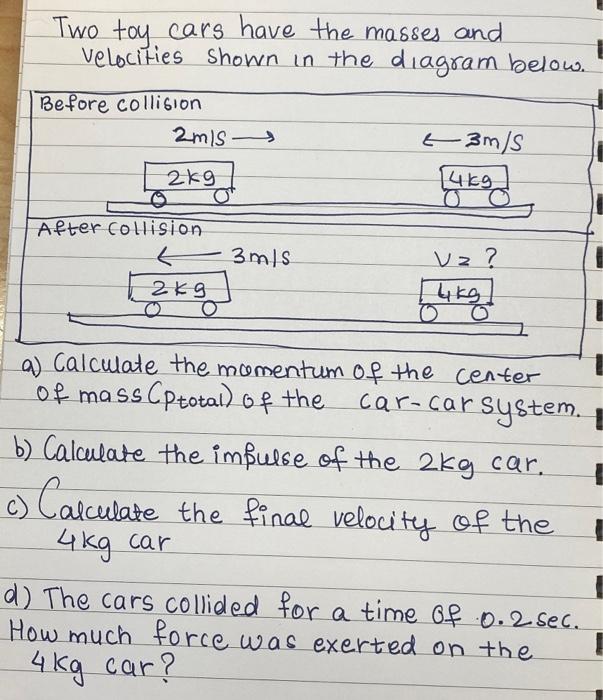 Two toy cars have the masses and
velocities shown in the diagram below.
Before collision
2m/s → ← 3m/s
2kg 4kg
After collision
← 3m/s V = ?
2kg 4kg
a) Calculate the momentum of the center
of mass (ptotal) of the car-car system.
b) Calculate the impulse of the 2kg car.
c) Calculate the final velocity of the
4kg car
d) The cars collided for a time of 0.2 sec.
How much force was exerted on the
4kg car?